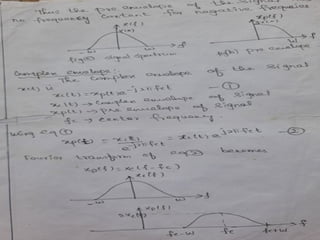 Thus the pre envelope of the Signal
no frequency content for negative frequencies
x(f)
xp(f)
-w w f
w f
fig(a) signal spectrum
(b) pre envelope
Complex envelope:
The Complex envelope of the Signal
x(t) is
xc(t) = xp(t) e^-j2πfct — ①
xc(t) → Complex envelope of Signal
xp(t) → Pre Envelope of Signal
fc → Center frequency.
using eq ①
xp(t) = xc(t) / e^-j2πfct = xc(t) e^j2πfct — ②
Fourier transform of eq② becomes
xp(f) = xc(f-fc)
xc(f)
-w w f
xp(f)
fc-w fc fc+w f